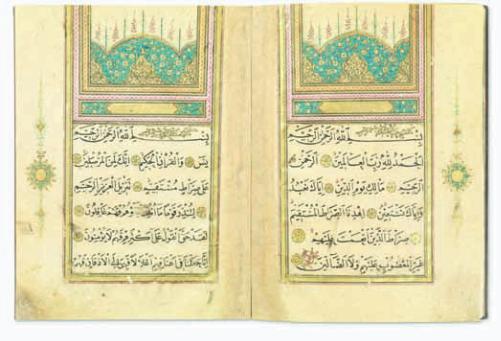 بِسْمِ اللهِ الرَّحْمٰنِ الرَّحِيمِ
اَلْحَمْدُ لِلّٰهِ رَبِّ الْعَالَمِينَ الرَّحْمٰنِ
الرَّحِيمِ مَالِكِ يَوْمِ الدِّينِ اِيَّاكَ نَعْبُدُ
وَاِيَّاكَ نَسْتَعِينُ اِهْدِنَا الصِّرَاطَ الْمُسْتَقِيمَ
صِرَاطَ الَّذِينَ اَنْعَمْتَ عَلَيْهِمْ
غَيْرِ الْمَغْضُوبِ عَلَيْهِمْ وَلَا الضَّالِّينَ
بِسْمِ اللهِ الرَّحْمٰنِ الرَّحِيمِ
يٰسٓ وَالْقُرْاٰنِ الْحَكِيمِ اِنَّكَ لَمِنَ الْمُرْسَلِينَ
عَلٰى صِرَاطٍ مُسْتَقِيمٍ تَنْزِيلَ الْعَزِيزِ الرَّحِيمِ
لِتُنْذِرَ قَوْمًا مَا فَهُمْ غَافِلُونَ
لَقَدْ حَقَّ الْقَوْلُ عَلٰى اَكْثَرِهِمْ فَهُمْ لَا يُؤْمِنُونَ
اِنَّا جَعَلْنَا فِي اَعْنَاقِهِمْ اَغْلَالًا فَهِيَ اِلَى الْاَذْقَانِ فَهُمْ